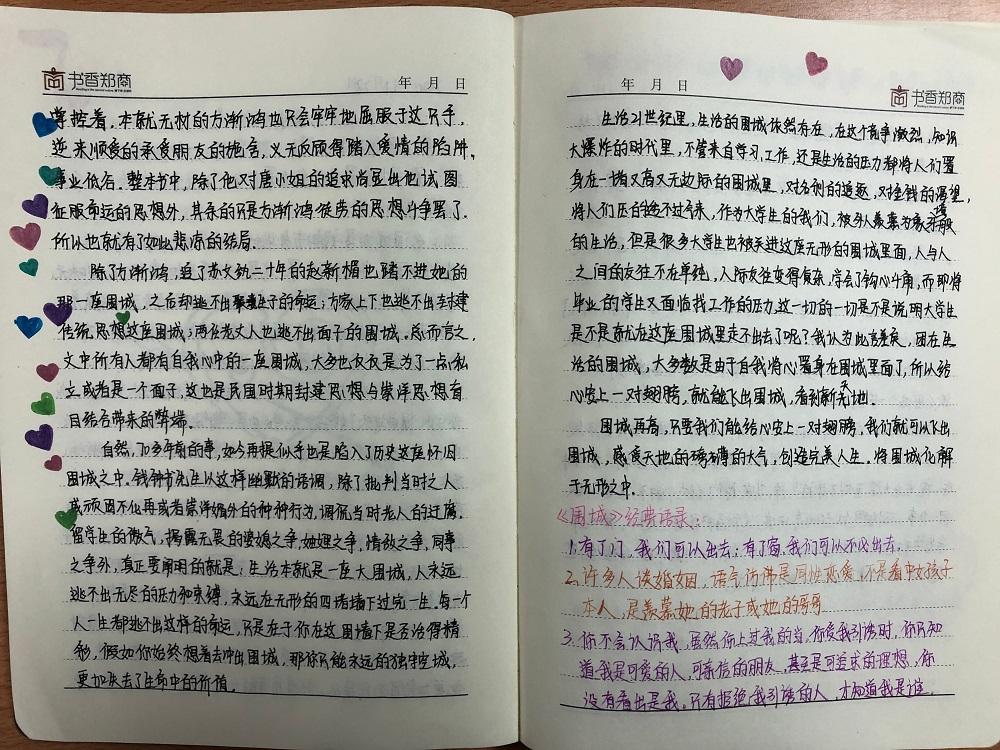 书香郑商
年 月 日
掌控着，本就无权的方渐鸿也只会牢牢地屈服于这只手，
逆来顺受的承受朋友的施舍，义无反顾得踏入爱情的陷阱，
事业低谷。整本书中，除了他对唐小姐的追求尚显出他试图
征服命运的思想外，其余的只是方渐鸿徒劳的思想斗争罢了．
所以也就有了如此悲凉的结局．
除了方渐鸿，追了苏文纨二十年的赵新楣也踏不进她的
那一座围城，之后却逃不出 子的命运；方家上下也逃不出封建
传统思想这座围城；两位老丈人也逃不出面子的围城．总而言之，
文中所有人都有自我心中的一座围城，大多也仅仅是为了一点私
立或者是一个面子，这也是民国时期封建思想与崇洋思想盲
目结合带来的弊端．
自然，70多年前的事，如今再提似乎也是陷入了历史这座怀旧
围城之中．钱钟书先生以这样幽默的语调，除了批判当时之人
或顽固不化再或者崇洋媚外的种种行为，调侃当时老人的迂腐．
留学生的傲气，揭露无畏的婆媳之争，妯娌之争，情敌之争，同事
之争外，真正要阐明的就是：生活本就是一座大围城，人永远
逃不出无尽的压力和束缚，永远在无形的四堵墙下过完一生．每一个
人一生都逃不出这样的命运，只是在于你在这围墙下是否活得精
彩，假如你始终想着去冲出围城，那你只能永远的独守空城，
更加失去了生命中的价值．
年 月 日
书香郑商
生活21世纪里，生活的围城依然存在，在这个竞争激烈，知识
大爆炸的时代里，不管来自学习，工作，还是生活的压力都将人们置
身在一堵又高又无边际的围城里，对名利的追逐，对挣钱的渴望，
将人们压的透不过气来，作为大学生的我们，被多人羡慕为象牙塔般
的生活，但是很多大学生也被丢进这座无形的围城里面，人与人
之间的友谊不在单纯，人际交往变得复杂，学会了钩心斗角，而即将
毕业的学生又面临找工作的压力，这一切的一切是不是说明大学生
是不是就在这座围城里走不出去了呢？我认为此言差矣，困在生
活的围城，大多数是由于自我将心置身在围城里面了，所以给
心安上一对翅膀，就能飞出围城，看到新天地．
围城再高，只要我们能给心安上一对翅膀，我们就可以飞出
围城，感受天地的磅礴的大气，创造完美人生．将围城化解
于无形之中．
《围城》经典语录：
1.有了门，我们可以出去；有了窗，我们可以不必出去．
2.许多人谈婚姻，语气仿佛是同性恋爱，不是看中女孩子
本人，是羡慕她的老子或她的哥哥
3.你不会认识我，虽然你上过我的当．你受我引诱时，你只知
道我是可爱的人，可亲信的朋友，甚至是可追求的理想，你
没有看出是我，只有拒绝我引诱的人，才知道我是谁．